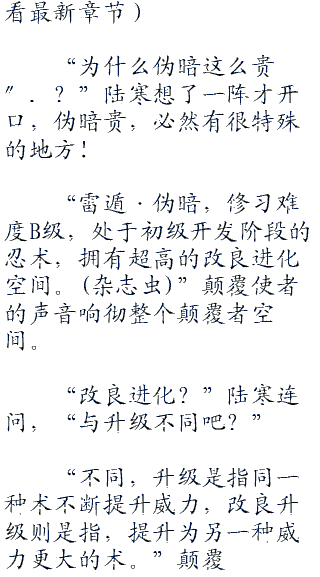 看最新章节）
“为什么伪暗这么贵
〃．？”陆寒想了一阵才开
口，伪暗贵，必然有很特殊
的地方！
“雷遁·伪暗，修习难
度B级，处于初级开发阶段的
忍术，拥有超高的改良进化
空间。(杂志虫)”颠覆使者
的声音响彻整个颠覆者空
间。
“改良进化？”陆寒连
问，“与升级不同吧？”
“不同，升级是指同一
种术不断提升威力，改良升
级则是指，提升为另一种威
力更大的术。”颠覆